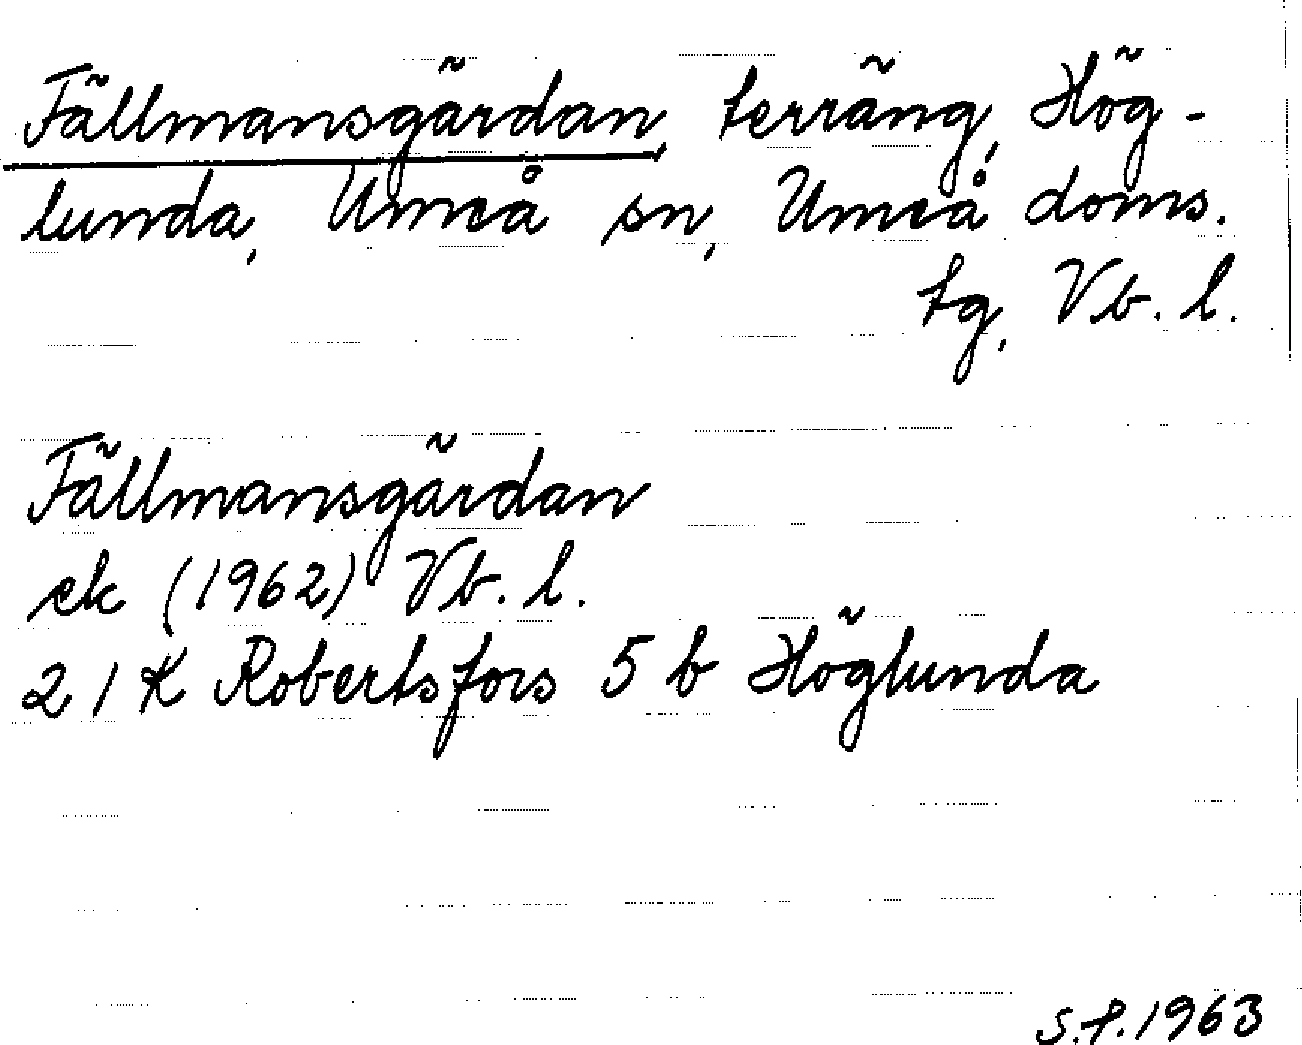 Fällmansgärdan, terräng, Hög-
lunda, Umeå sn, Umeå doms.
tg, Vb. l.
Fällmansgärdan
ek (1962) Vb. l.
21 K Robertsfors 5 b Höglunda
S.P. 1963